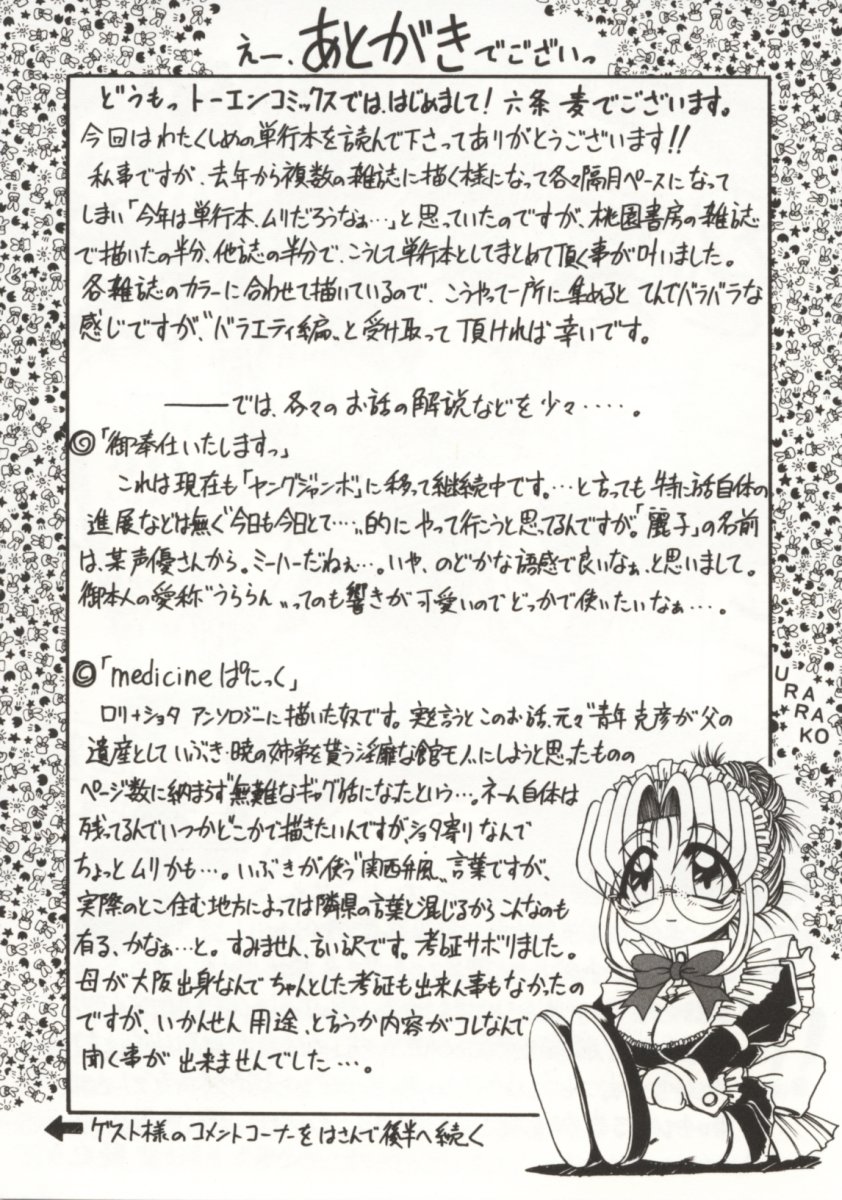 えー、あとがきでございっ
どうもっ トーエンコミックスでは、はじめまして！六条 麦でございます。
今回はわたくしめの単行本を読んで下さってありがとうございます!!
私事ですが、去年から複数の雑誌に描く様になって各々隔月ペースになって
しまい「今年は単行本、ムリだろうなぁ…」と思っていたのですが、桃園書房の雑誌
で描いたの半分、他誌の半分で、こうして単行本としてまとめて頂く事が叶いました。
各雑誌のカラーに合わせて描いているので、こうやって一所に集めると てんでバラバラな
感じですが、〝バラエティ編〟と受け取って頂ければ幸いです。
――では、各々のお話の解説などを少々・・・・。
◎「御奉仕いたしますっ」
これは現在も「ヤングジャンボ」に移って継続中です。…と言っても 特に話自体の
進展などは無く〝今日も今日とて…〟的に やって行こうと思ってるんですが。「麗子」の名前
は、某声優さんから。ミーハーだねぇ…。いや、のどかな語感で良いなぁ、と思いまして。
御本人の愛称〝うららん〟ってのも響きが可愛いのでどっかで使いたいなぁ…。
◎「medicineぱにっく」
ロリ+ショタ アンソロジーに描いた奴です。実を言うとこのお話、元々〝青年 克彦が父の
遺産として いぶき・暁の姉弟を貰う淫靡な館モノ〟にしようと思ったものの
ページ数に納まらず〝無難なギャグ話になったという…。ネーム自体は
残ってるんでいつかどこかで描きたいんですが、ショタ寄りなんで
ちょっとムリかも…。いぶきが使う〝関西弁風〟言葉ですが、
実際のとこ住む地方によっては隣県の言葉と混じるからこんなのも
有る、かなぁ…と。すみません、言い訳です。考証サボりました。
母が大阪出身なんでちゃんとした考証も出来ん事もなかったの
ですが、いかんせん 用途、と言うか内容がコレなんで
聞く事が 出来ませんでした…。
URARAKO
← ゲスト様のコメントコーナーをはさんで後半へ続く